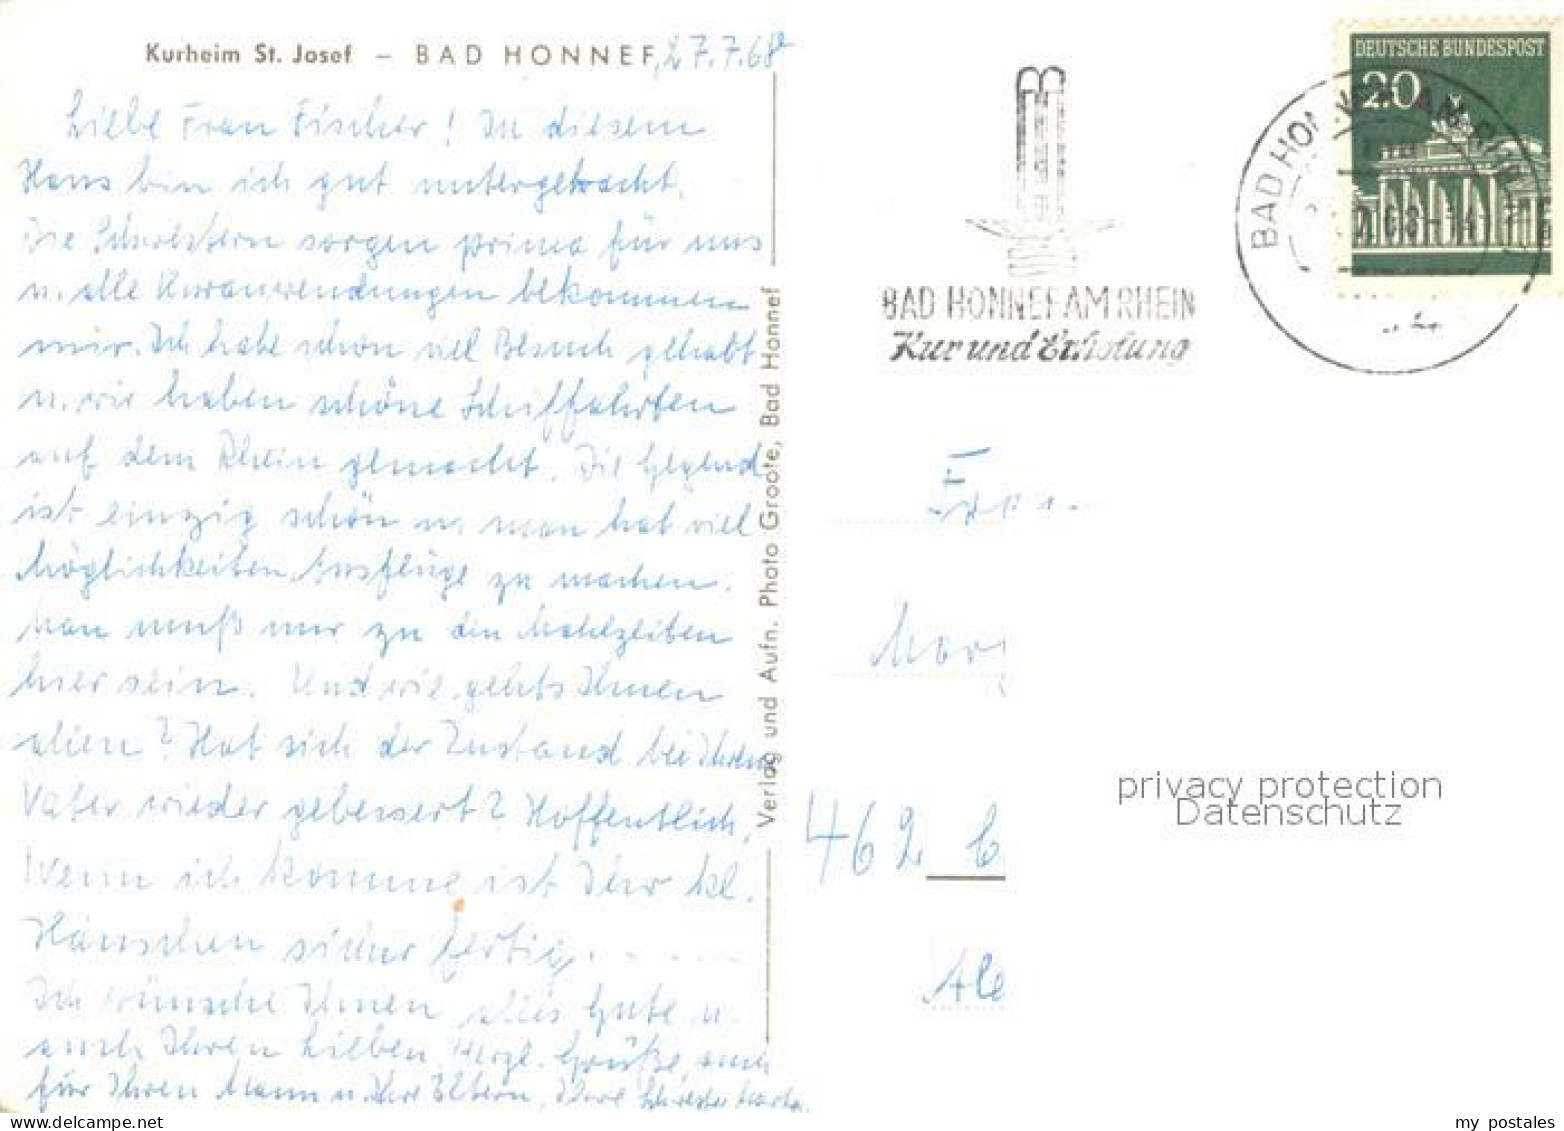 Kurheim St. Josef – BAD HONNEF, 27.7.68
Liebe Frau Fischer! In diesem
Haus bin ich gut untergebracht.
Die Schwestern sorgen prima für uns
u. alle Kuranwendungen bekommen
wir. Ich habe schon viel Besuch gehabt
u. wir haben schöne Schiffahrten
auf dem Rhein gemacht. Die Gegend
ist einzig schön u. man hat viel
Möglichkeiten Ausflüge zu machen.
Man muß nur zu den Mahlzeiten
hier sein. Und wie gehts Ihnen
allen? Hat sich der Zustand bei Ihrem
Vater wieder gebessert? Hoffentlich.
Wenn ich komme ist Ihr kl.
Häuschen sicher fertig. . . . .
Ich wünsche Ihnen alles Gute u.
auch Ihren Lieben. Herzl. Grüße, auch
für Ihren Mann u. Ihre Eltern, Ihre Schwester
Verlag und Aufn. Photo Groote, Bad Honnef
BAD HONNEF AM RHEIN
Kur und Erholung
DEUTSCHE BUNDESPOST
20
BAD HONNEF AM RHEIN
Frau
462
privacy protection
Datenschutz
my postales